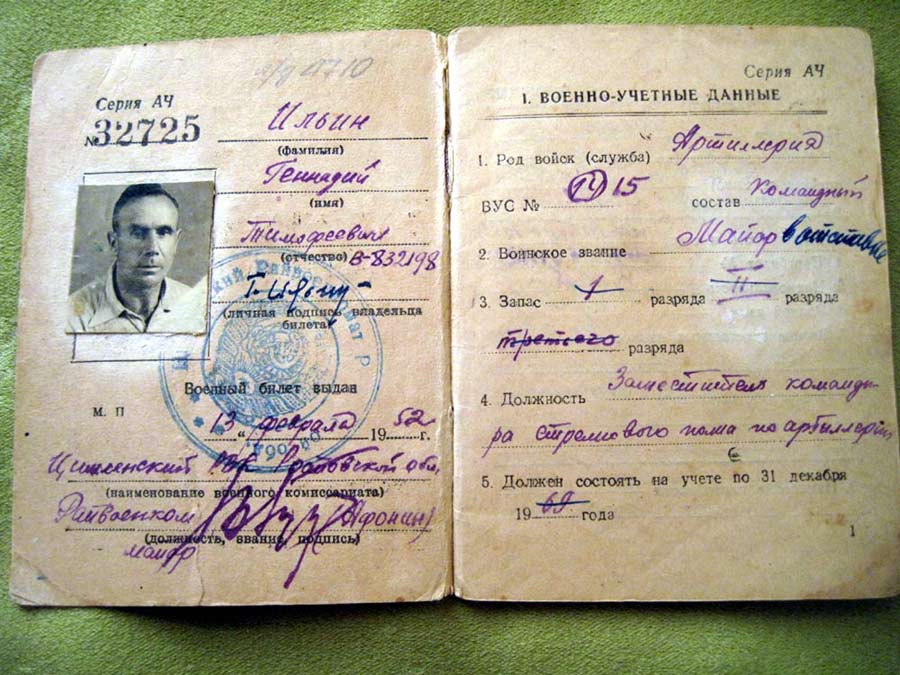 Серия АЧ
№ 32725
Ильин
(фамилия)
Геннадий
(имя)
Тимофеевич
(отчество) В-832198
(личная подпись владельца
билета)
Военный билет выдан
М. П
"13" февраля 1952 г.
Цимлянский РВК Ростовской обл.
(наименование военного комиссариата)
Райвоенком (Афонин)
(должность, звание, подпись)
майор
Серия АЧ
1. ВОЕННО-УЧЕТНЫЕ ДАННЫЕ
1. Род войск (служба) Артиллерия
ВУС № 15 состав Командный
2. Воинское звание Майор в отставке
3. Запас 1 разряда II разряда
третьего разряда
4. Должность Заместитель команди-
ра стрелкового полка по артиллерии
5. Должен состоять на учете по 31 декабря
1969 года
1